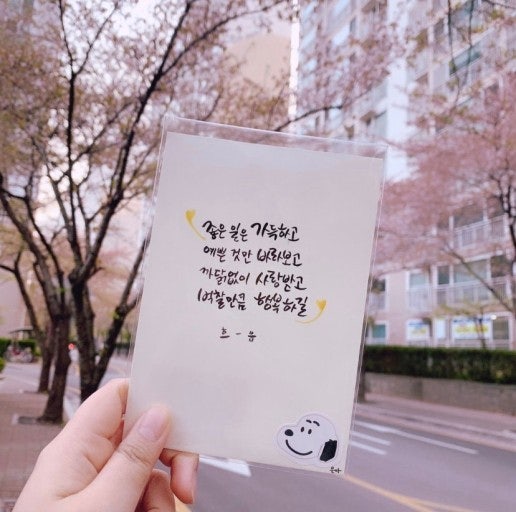 좋은 일은 가득하고
예쁜 것만 바라보고
까닭없이 사랑받고
억찰만큼 행복하길
흐-음
은아